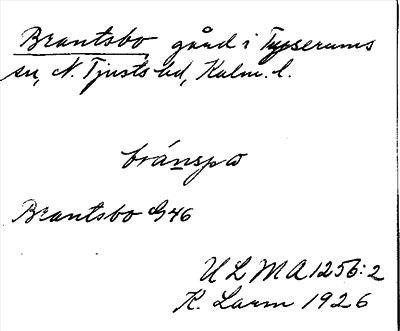 Brantsbo gård i Tryserums
sn, N. Tjusts hd, Kalm. l.
bránspω
Brantsbo G46
ULMA 1256:2
K. Larm 1926